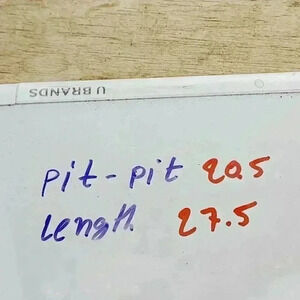 U BRANDS
pit-pit 20.5
length 27.5